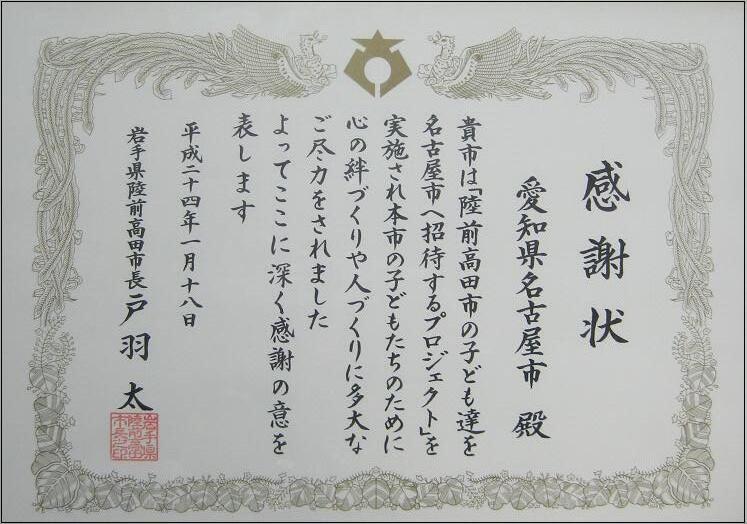 感謝状
愛知県名古屋市 殿
貴市は「陸前高田市の子ども達を
名古屋市へ招待するプロジェクト」を
実施され本市の子どもたちのために
心の絆づくりや人づくりに多大な
ご尽力をされました
よってここに深く感謝の意を
表します
平成二十四年一月十八日
岩手県陸前高田市長 戸羽 太
岩手県
陸前高田
市長之印